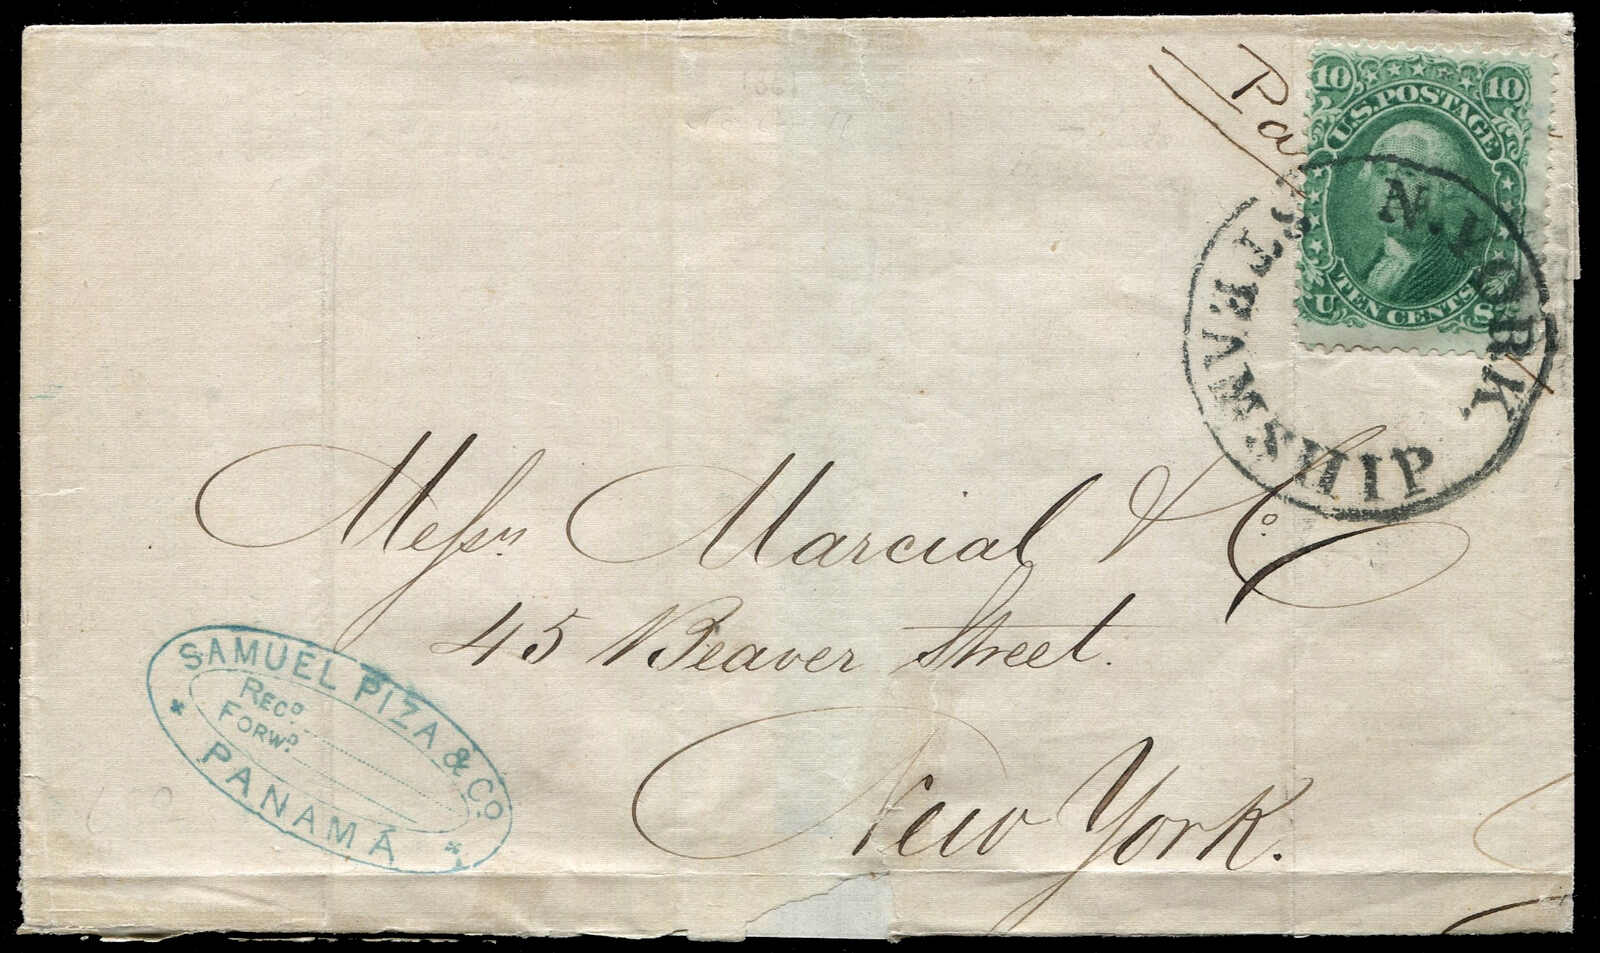 Pa
10 10
U.S. POSTAGE
TEN CENTS
U S
N. YORK
STEAMSHIP
Messrs Marcial & Co.
45 Beaver Street.
New York.
SAMUEL PIZA & Co.
RECD.
FORWD.
PANAMÁ